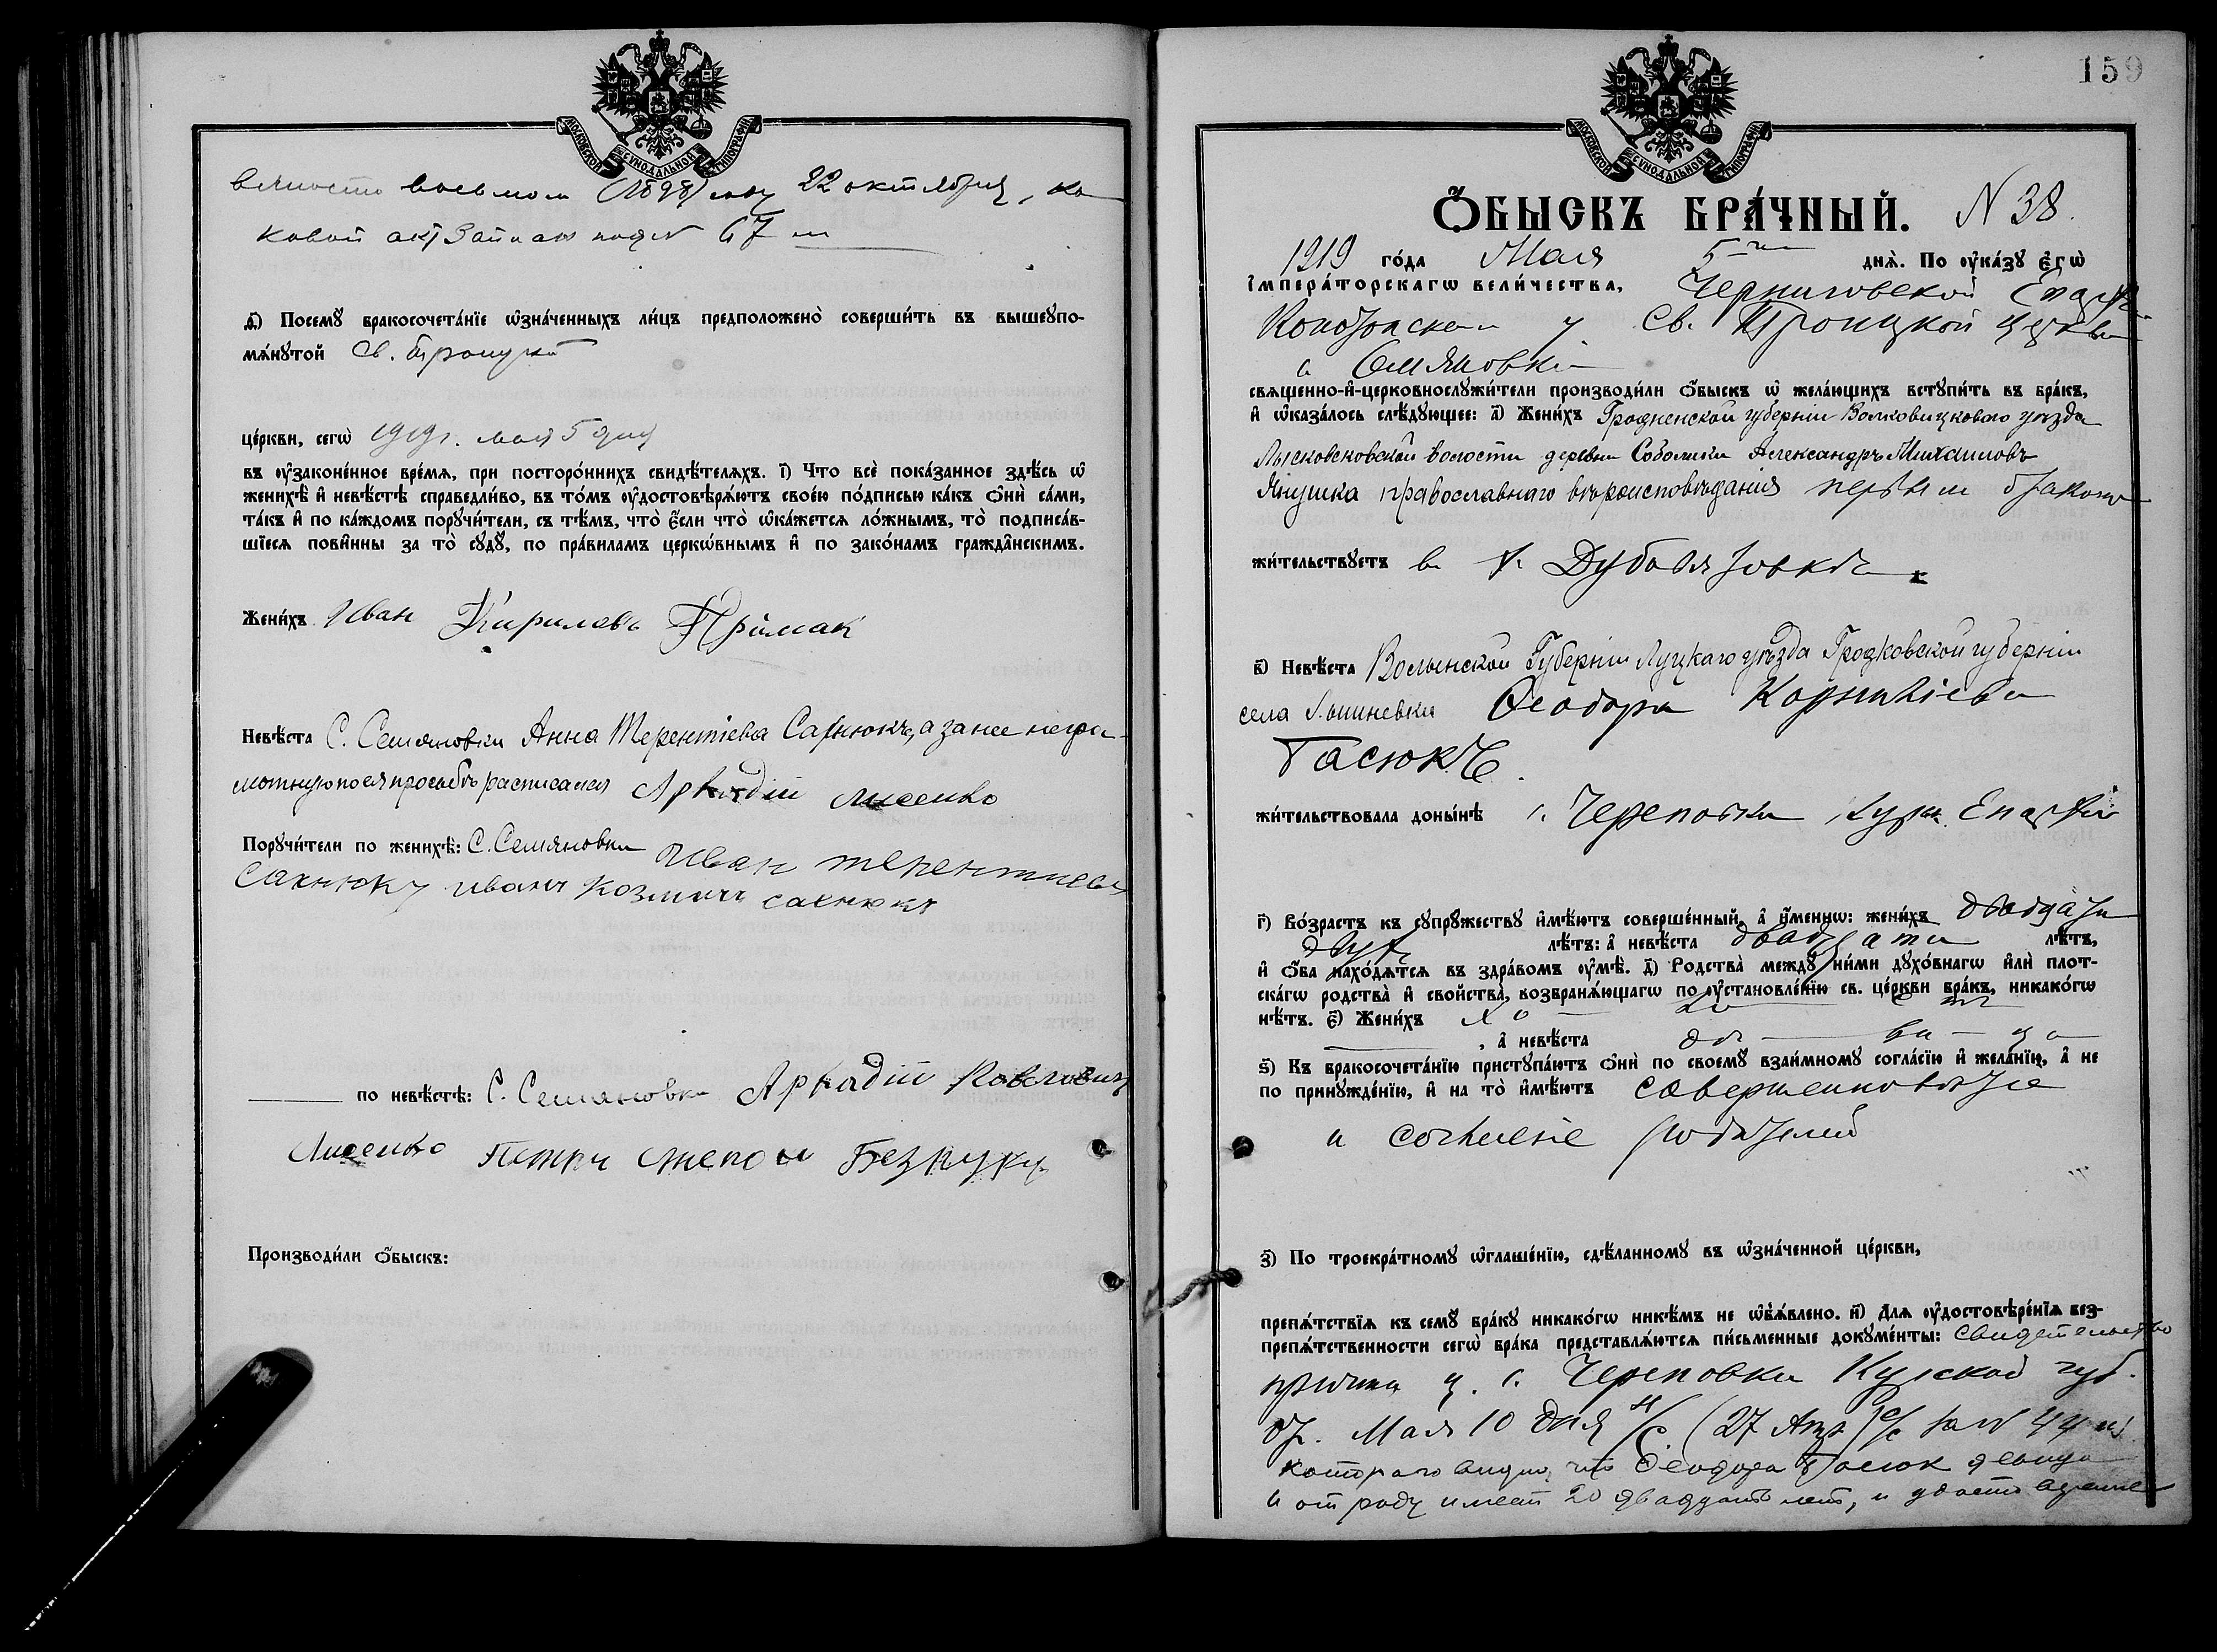 МОСКОВСКОЙ СѴНОДАЛЬНОЙ ТИПОГРАФІИ
восьмом (1898) году 22 октября, ка
ковой акт записан под № 67 м
ѳ҃) Посемꙋ̀ бракосочета́нїе ѡ҆зна́ченныхъ ли́цъ предположено̀ соверши́ть въ вышеꙋпо-
мѧ́нꙋтой Св. Троицкой
це́ркви, сегѡ̀ 1919 г. мая 5 дня
въ ᲂу҆зако́ненное вре́мѧ, при посторо́ннихъ свидѣ́телѧхъ. і҃) Что всѐ пока́занное здѣ́сь ѡ҆
женихѣ̀ и҆ невѣ́стѣ справедли́во, въ то́мъ ᲂу҆достовѣрѧ́ютъ свое́ю по́дписью ка́къ ѻ҆нѝ са́ми,
та́къ и҆ по ка́ждомъ порꙋчи́тели, съ тѣ́мъ, что̀ є҆́сли что̀ ѡ҆ка́жетсѧ ло́жнымъ, то̀ подписа́в-
шїесѧ пови́нны за то̀ сꙋдꙋ̀, по пра́виламъ церкѡ́внымъ и҆ по зако́намъ гражда̑нскимъ.
Жени́хъ Иван Кирилавъ Прімак
Невѣ́ста С. Семяновки Анна Терентіева Сахнюкъ, а за нее негра-
мотную по ея просьбѣ расписался Аркадій Лисенко
Порꙋчи́тели по женихѣ̀: С. Семяновки Иван терентиевъ
Сахнюкъ иванъ Козмичъ сахнюкъ
по невѣ́стѣ: С. Семяновки Аркадій Павловичъ
Лисенко Петръ Безруки
Производи́ли ѻ҆́быскъ:
159
МОСКОВСКОЙ СѴНОДАЛЬНОЙ ТИПОГРАФІИ
Ѻ҆́БЫСКЪ БРА́ЧНЫЙ. N 38.
1919 го́да Мая 5 днѧ̀. По ᲂу҆ка́зꙋ є҆гѡ̀
і҆мпера́торскагѡ вели́чества, Черниговской Епархіи
Конотопскаго у. Св. Троицкой церкви
с. Семяновки
свѧще́нно-и҆-церковнослꙋжи́тели производи́ли ѻ҆́быскъ ѡ҆ жела́ющихъ встꙋпи́ть въ бра́къ,
и҆ ѡ҆каза́лось слѣ́дꙋющее: а҃) Жени́хъ Гродненской губерніи Волковицковаго уѣзда
Лысковсновской волости деревни Соболики Александръ Михаиловъ
Янушка православнаго вѣроисповѣданія первым браком
жи́тельствꙋетъ в с. Дубовязовкѣ
в҃) Невѣ́ста Волынской Губерніи Луцкаго уѣзда Грозковской губерніи
села Феодора Корниліева
Гасюкъ.
жи́тельствовала доны́нѣ с. Череповки Курск. Епархіи
г҃) Во́зрастъ къ сꙋпрꙋ́жествꙋ и҆мѣ́ютъ соверше́нный, а҆ и҆́меннѡ: жени́хъ двадцати
двух лѣ́тъ: а҆ невѣ́ста двадцати лѣ́тъ,
и҆ ѻ҆́ба нахо́дѧтсѧ въ здра́вомъ ᲂу҆мѣ̀. д҃) Родства̀ междꙋ̀ ни́ми дꙋхо́внагѡ и҆лѝ плот-
ска́гѡ родства̀ и҆ сво́йства, возбранѧ́ющагѡ по ᲂу҆становле́нїю св. це́ркви бра́къ, никако́гѡ
нѣ́тъ. є҃) Жени́хъ хо ло ст
, а҆ невѣ́ста дѣ ви ца
ѕ҃) Къ бракосочета́нїю пристꙋпа́ютъ ѻ҆нѝ по своемꙋ̀ взаи́мномꙋ согла́сїю и҆ жела́нїю, а҆ не
по принꙋжде́нїю, и҆ на то̀ и҆мѣ́ютъ совершеннолѣтіе
и согласіе родителей
з҃) По троекра́тномꙋ ѡ҆глаше́нїю, сдѣ́ланномꙋ въ ѡ҆зна́ченной це́ркви,
препѧ́тствїѧ къ семꙋ̀ бра́кꙋ никако́гѡ никѣ́мъ не ѡ҆б̾ѧ́влено. и҃) Длѧ ᲂу҆достовѣре́нїѧ без-
препѧ́тственности сегѡ̀ бра́ка представлѧ́ютсѧ пи́сьменные докꙋме́нты: свидетельство
причта ц. с. Череповки Курской губ.
от Мая 10 дня н/с. (27 Апр) с/с за № 44 из
котораго видно, что Феодора Гасюк девица
и от роду имеет 20 двадцать лет,